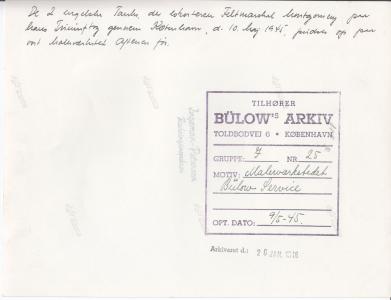 De 2 engelske Tanks, der eskorterer Feltmarskal Montgomery paa
hans Triumftog gennem København, d. 10. Maj 1945, pudses op paa
vort Maleværksted Aftenen før.
TILHØRER
BÜLOW'S ARKIV
TOLDBODVEJ 6 • KØBENHAVN
GRUPPE: 7 NR. 25
MOTIV: Maleværkstedet
Bülow Service
OPT. DATO: 9/5-45.
Arkiveret d.: 26 JAN.